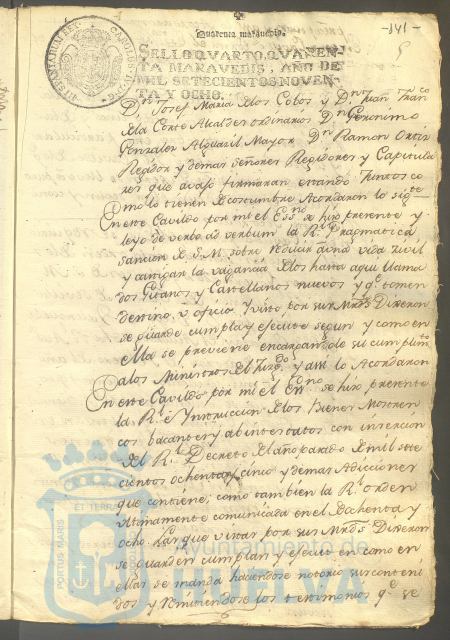 Quarenta maravedis.
-141-
SELLO QVARTO, QVAREN-
TA MARAVEDIS, AÑO DE
MIL SETECIENTOS NOVEN-
TA Y OCHO.
HISPANIARUM REX CAROLUS
Dn. Josef Maria de los Cobos y Dn. Juan Franco
de la Corte Alcaldes ordinarios Dn. Geronimo
Gonzales Alguasil Mayor Dn. Ramon Ortiz
Regidor y demas señores Regidores y Capitula
res que avajo firmaran estando Juntos co
mo lo tienen de costumbre Acordaron lo sigte
En este Cavildo por mi el Essno se hizo presente y
leyo de verbo ad verbum la Rl. Pragmatica
sancion de S.M. sobre reducir a una vida civil
y castigar la vagancia de los hasta aqui llama
dos Gitanos y Castellanos nuevos y qe tomen
destino, u oficio y visto por sus Mrds Dixeron
se guarde cumpla y efecute segun y como en
ella se previene encargandole su cumplimto
a los Ministros del Juzgdo y asi lo Acordaron
En este Cavildo por mi el Essno se hizo presente
la Rl. Ynstruccion de los Bienes Mostren
cos bacantes y abintestatos con insercion
del Rl. Decreto del año pasado de mil sete
cientos ochenta y cinco y demas Adicciones
que contiene, como tambien la Rl. orden
ultimamente comunicada en el de ochenta y
ocho Las que vistas por sus Mrds. Dixeron
se guarden cumplan y efecuten como en
ellas se manda haciendose notorio su conteni
dos y remitiendose los testimonios qe se
PORTUS MARIS
ET TERRAE
Ayuntamiento de
HUELVA